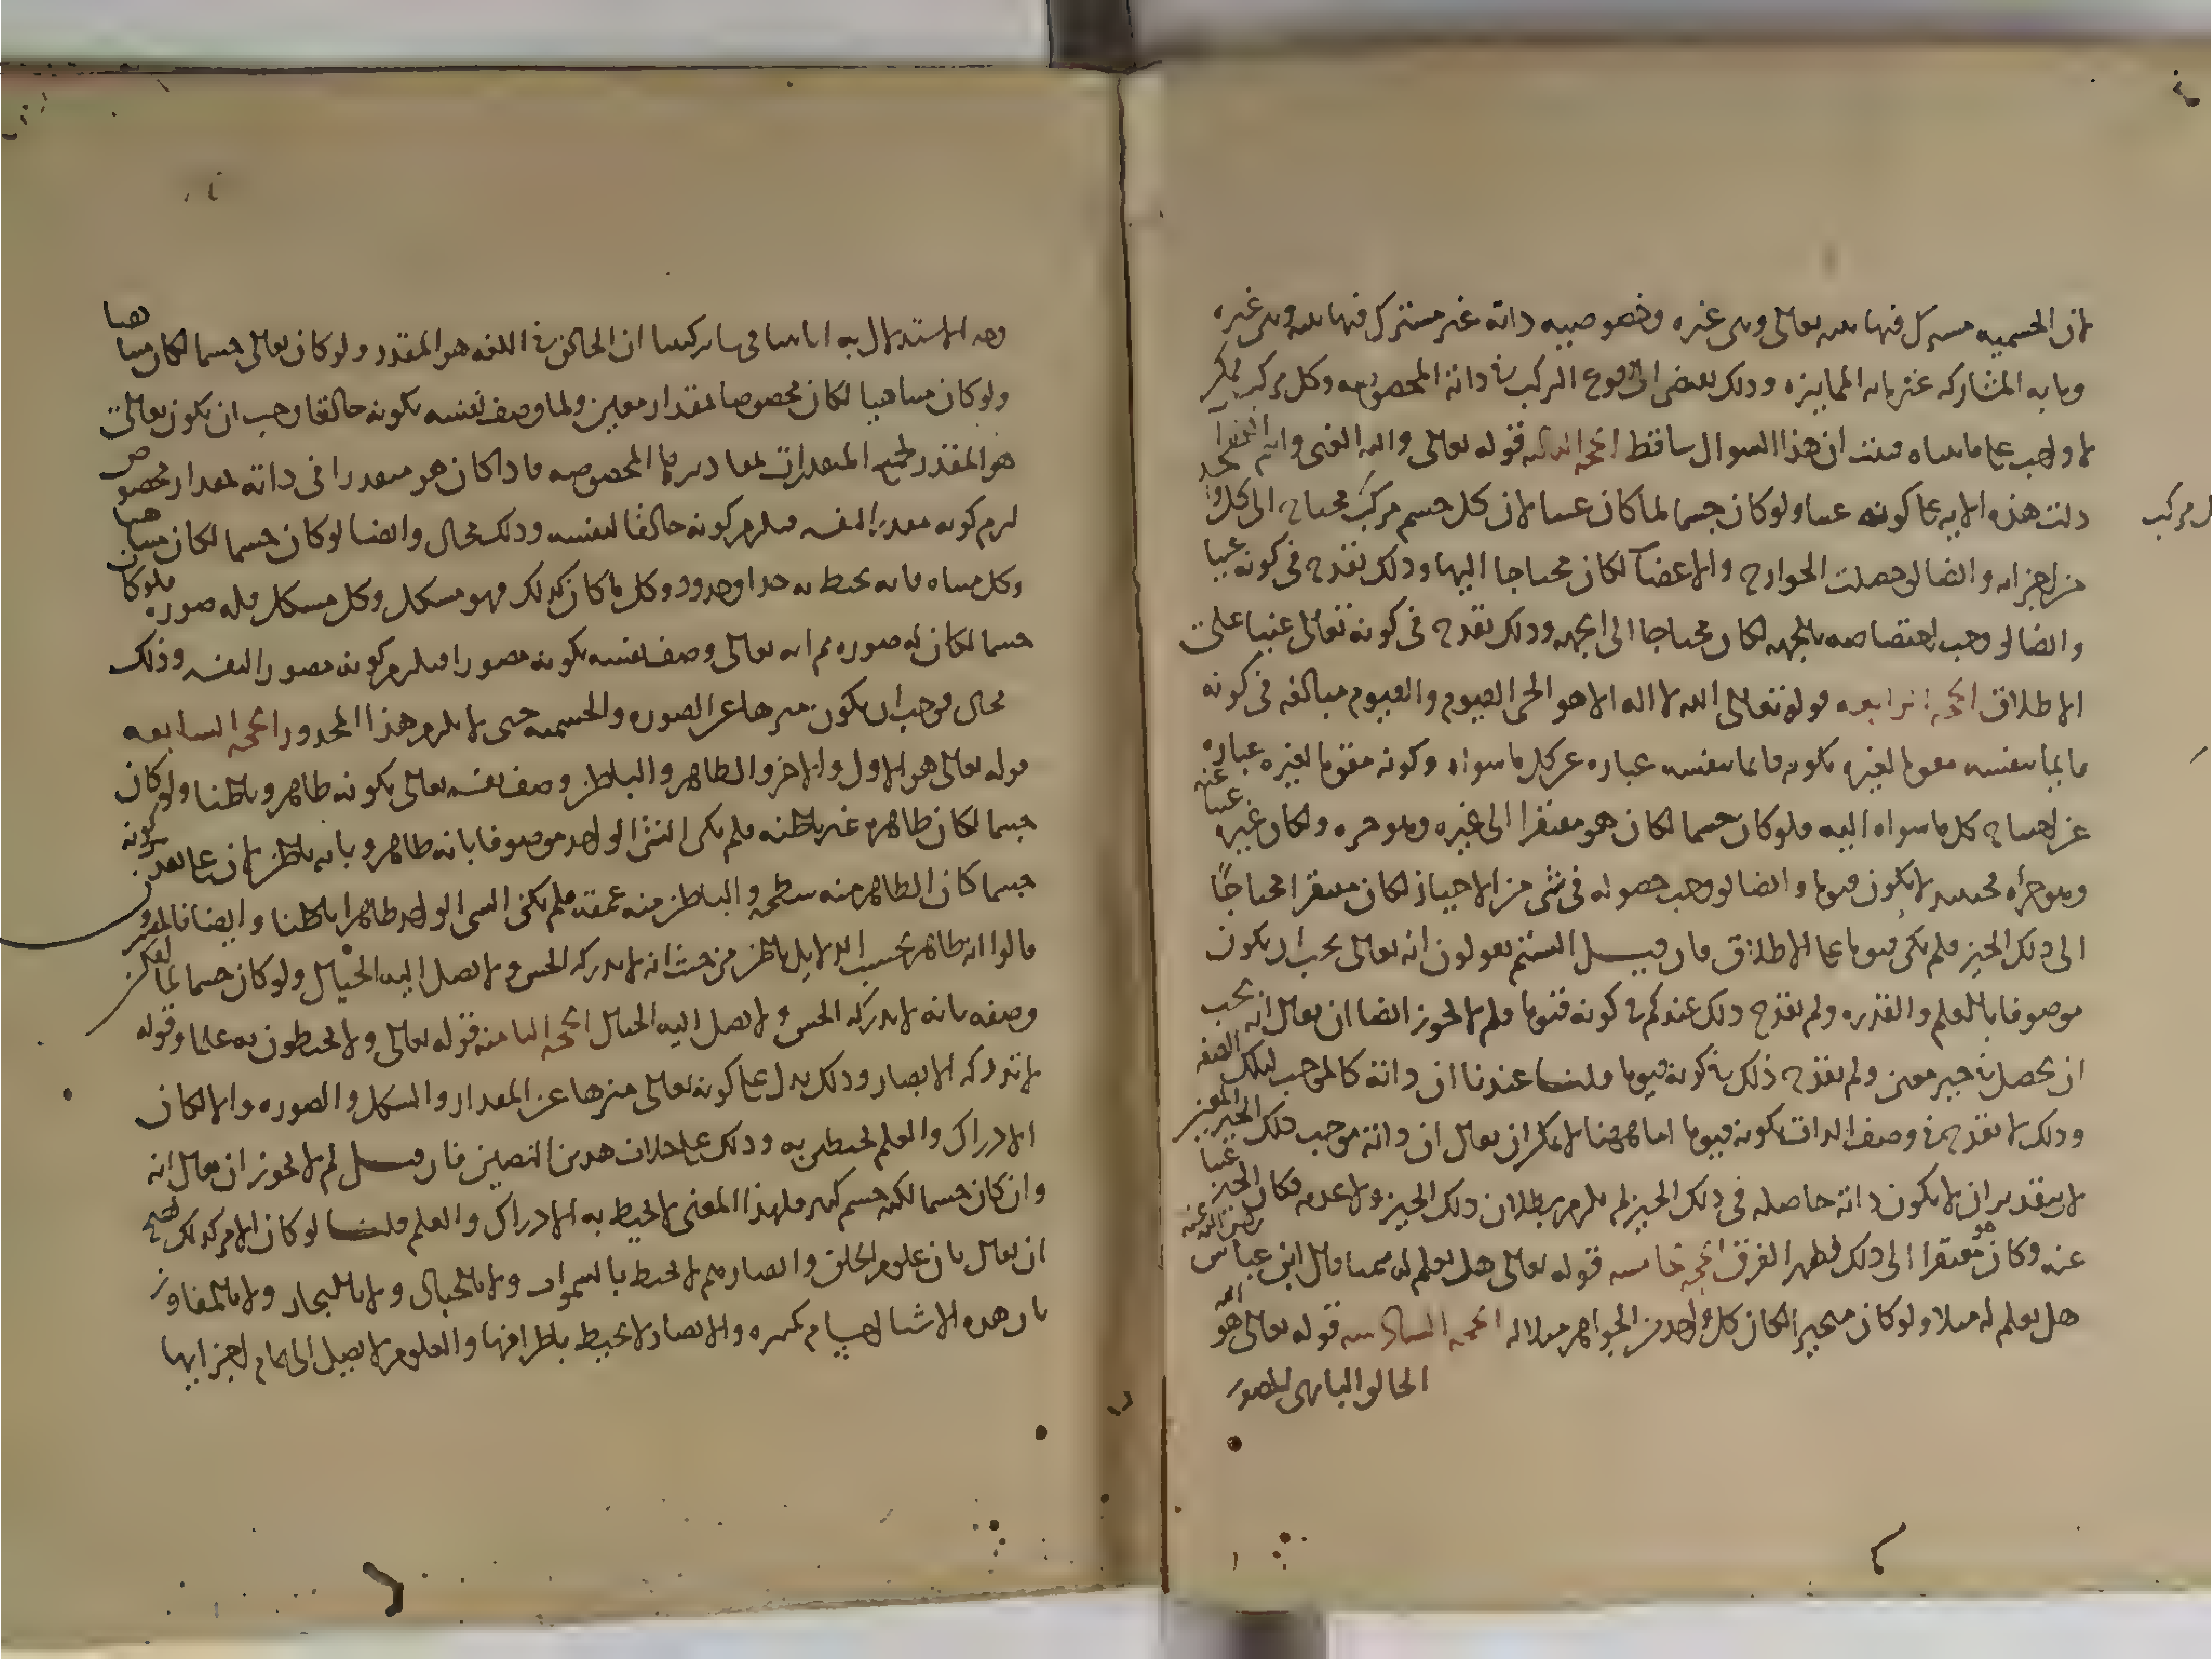 لان الجسميه مشترك فيها بينه تعالى وبين غيره وخصوصيه ذاته غير مشترك فيها بينه وبين غيره
وما به المشاركه غير ما به الممايزه وذلك يقتضى وقوع التركيب في ذاته المخصوصه وكل مركب ممكن
لا واجب على ما بيناه فثبت ان هذا السوال ساقط الحجه الثالثه قوله تعالى والله الغنى وانتم الفقرا
دلت هذه الايه على كونه غنيا ولو كان جسما لما كان غنيا لان كل جسم مركب وكل مركب محتاج الى كل واحد
من اجزائه وايضا لو حصلت الجوارح والاعضآ لكان محتاجا اليها وذلك يقدح في كونه غنيا
وايضا لو وجب اختصاصه بالجهه لكان محتاجا الى الجهه وذلك يقدح في كونه تعالى غنيا على
الاطلاق الحجه الرابعه قوله تعالى الله لا اله الا هو الحى القيوم والقيوم مبالغه في كونه
قايما بنفسه مقوما لغيره فكونه قايما بنفسه عباره عن كل ما سواه وكونه مقوما لغيره عباره
عن احتياج كل ما سواه اليه فلو كان جسما لكان هو مفتقرا الى غيره وهو جزءه ولكان غيره غنيا عنه
وهو جزأه فحينئذ لا يكون قيوما وايضا لو وجب حصوله في شى من الاحياز لكان مفتقرا محتاجًا
الى ذلك الحيز فلم يكن قيوما على الاطلاق فان قيل الستم تقولون انه تعالى يجب ان يكون
موصوفا بالعلم والقدره ولم يقدح ذلك عندكم في كونه قيوما فلم لا يجوز ايضا ان يقال انه يجب
ان يحصل في حيز معين ولم يقدح ذلك في كونه قيوما قلنا عندنا ان ذاته كالموجب لتلك الصفه
وذلك لا يقدح في وصف الذات بكونه قيوما اما ههنا لا يمكن ان يقال ان ذاته توجب ذلك الحيز المعين
لان بتقدير ان لا يكون ذاته حاصله في ذلك الحيز لم يلزم بطلان ذلك الحيز ولا عدمه فكان الحيز غنيا
عنه وكان هو مفتقرا الى ذلك فظهر الفرق الحجه الخامسه قوله تعالى هل تعلم له سميا قال ابن عباس رضى الله عنه
هل تعلم له مثلا ولو كان متحيزا لكان كل واحد من الجواهر مثلا له الحجه السادسه قوله تعالى هو الله
الخالق البارى المصور
وجه الاستدلال به انا بينا في ساير كتبنا ان الخالق في اللغه هو المقدر ولو كان تعالى جسما لكان متناهيا
ولو كان متناهيا لكان مخصوصا بمقدار معين ولما وصف نفسه بكونه خالقا وجب ان يكون تعالى
هو المقدر لجميع المقدرات بمقاديرها المخصوصه فاذا كان هو مقدرا في ذاته بمقدار مخصوص
لزم كونه مقدرا لنفسه فيلزم كونه خالقًا لنفسه وذلك محال وايضا لو كان جسما لكان متناهيا
وكل متناه فانه يحيط به حد او حدود وكل ما كان كذلك فهو مشكل وكل مشكل فله صوره فلو كان
جسما لكان له صوره ثم انه تعالى وصف نفسه بكونه مصورا فيلزم كونه مصورا لنفسه وذلك
محال فوجب ان يكون منزها عن الصوره والجسميه حتى لا يلزم هذا المحذور الحجه السابعه
قوله تعالى هو الاول والاخر والظاهر والباطن وصف نفسه تعالى بكونه ظاهرا وباطنا ولو كان
جسما لكان ظاهره غير باطنه فلم يكن الشى الواحد موصوفا بانه ظاهر وبانه باطن لان على تقدير كونه
جسما كان الظاهر منه سطحه والباطن منه عمقه فلم يكن الشى الواحد ظاهرا باطنا وايضا فالمفسرون
قالوا انه ظاهر بحسب الدلايل باطن من حيث انه لا يدركه الحس ولا يصل اليه الخيال ولو كان جسما لما امكن
وصفه بانه لا يدركه الحس ولا يصل اليه الخيال الحجه الثامنه قوله تعالى ولا يحيطون به علما وقوله
لا تدركه الابصار وذلك يدل على كونه تعالى منزها عن المقدار والشكل والصوره والا لكان
الادراك والعلم محيطين به وذلك على خلاف هذين النصين فان قيل لم لا يجوز ان يقال انه
وان كان جسما لكنه جسم كبير فلهذا المعنى لا يحيط به الادراك والعلم قلنا لو كان الامر كذلك لصح
ان يقال بان علوم الخلق وابصارهم لا تحيط بالسموات ولا بالجبال ولا بالبحار ولا بالمفاوز
فان هذه الاشيا اجسام كبيره والابصار لا تحيط باطرافها والعلوم لا تصل الى تمام اجزايها